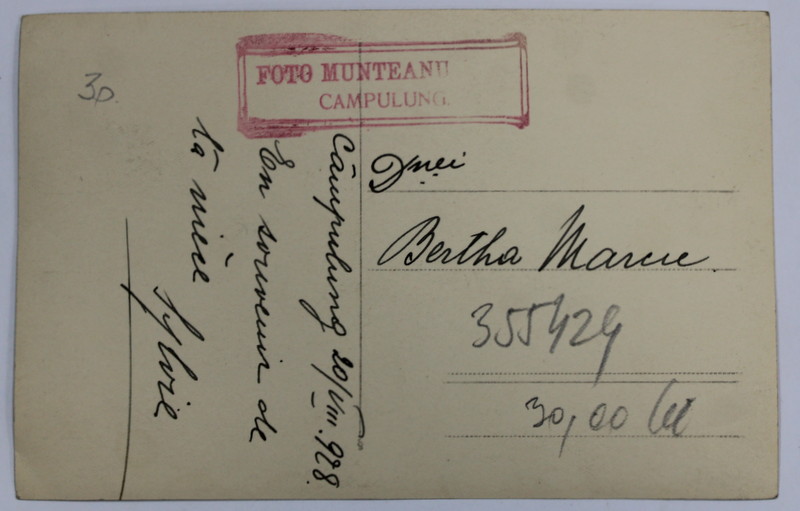 30.
FOTO MUNTEANU
CAMPULUNG.
Câmpulung 20/VIII.928.
En souvenir de
ta nièce
Sylvie
Dnei
Bertha Marcu
355424
30,00 lei